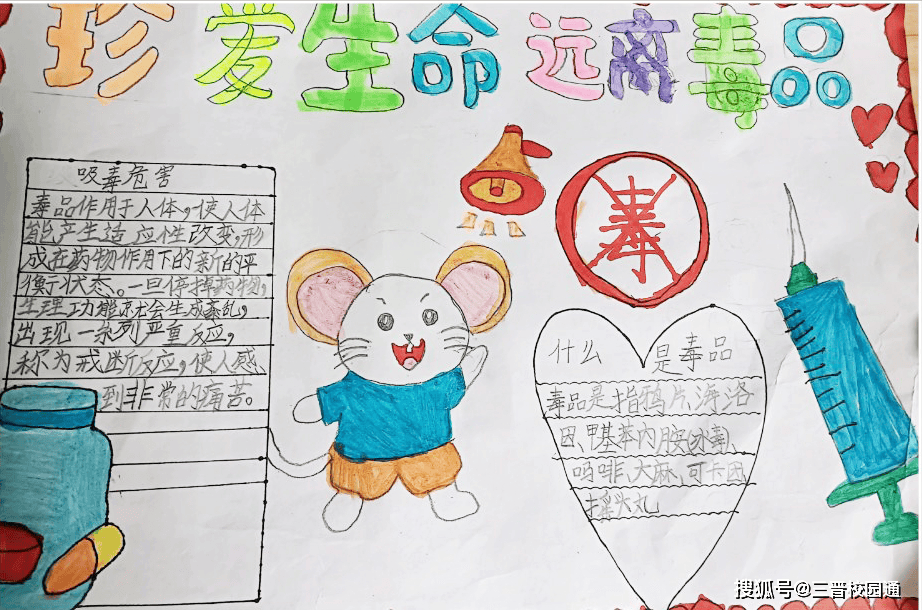 珍爱生命远离毒品
吸毒危害
毒品作用于人体,使人体
能产生适应性改变,形
成在药物作用下的新的平
衡状态。一旦停掉药物,
生理功能就会生成紊乱,
出现一系列严重反应,
称为戒断反应,使人感
到非常的痛苦。
毒
什么是毒品
毒品是指鸦片、海洛
因、甲基苯内胺(冰毒)、
吗啡、大麻、可卡因、
摇头丸
搜狐号@三晋校园通